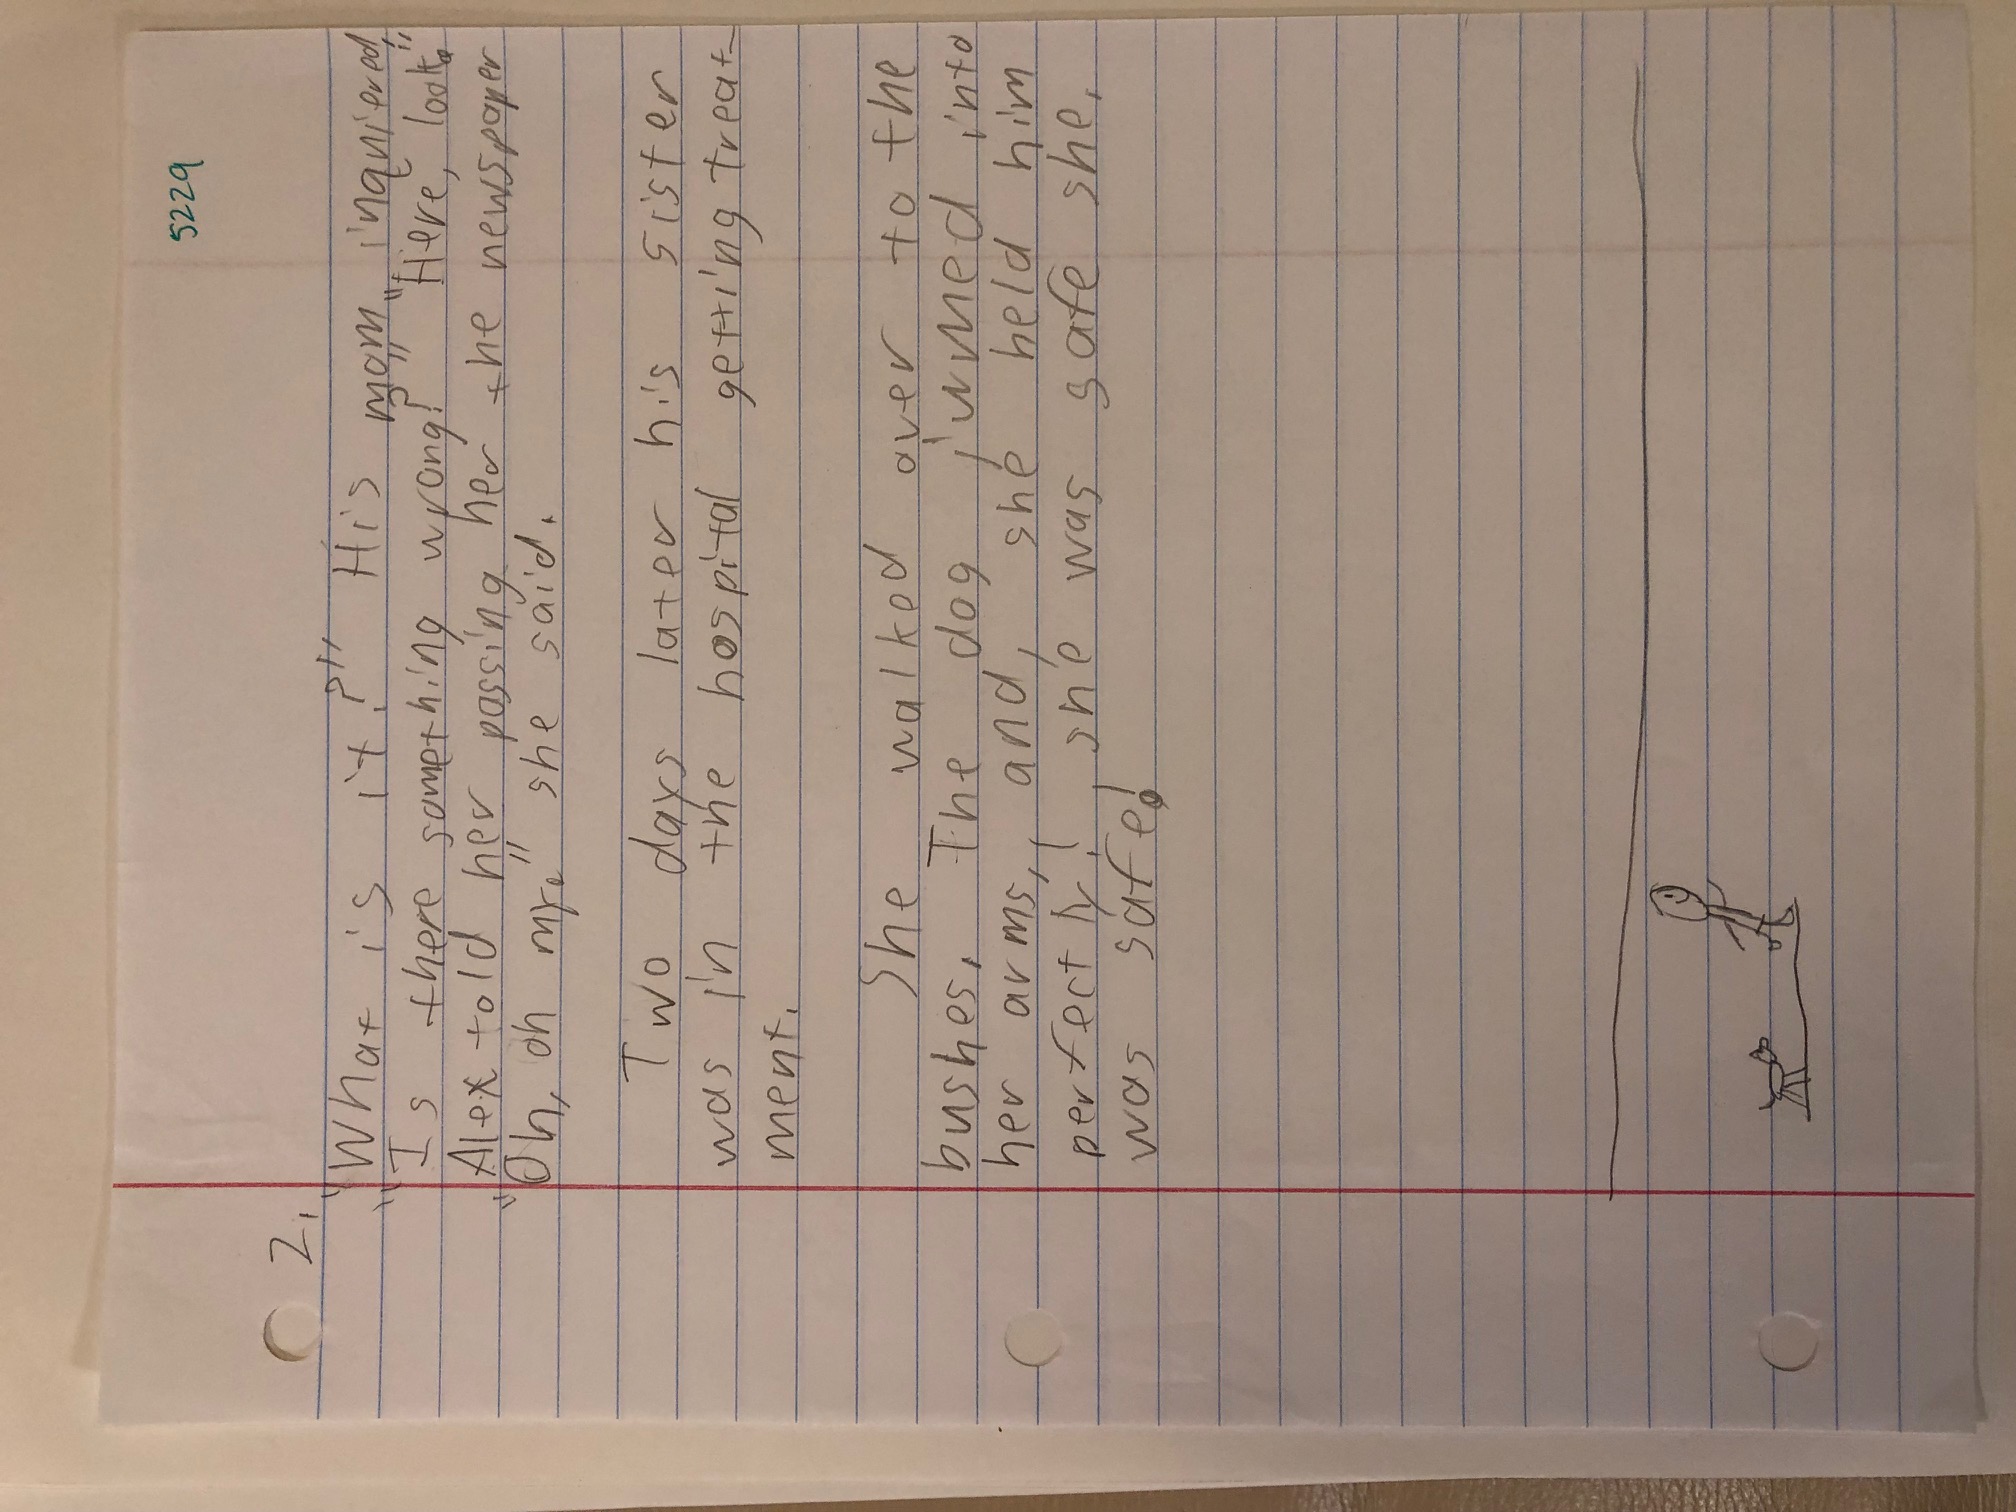 5229
2.
"What is it?" His mom inquiered,
"Is there something wrong?" "Here, look."
Alex told her passing her the newspaper
"Oh, oh my." she said.
Two days later his sister
was in the hospital getting treat-
ment.
She walked over to the
bushes. The dog jumed into
her arms, and, she held him
perfectly!, she was safe she,
was safe!